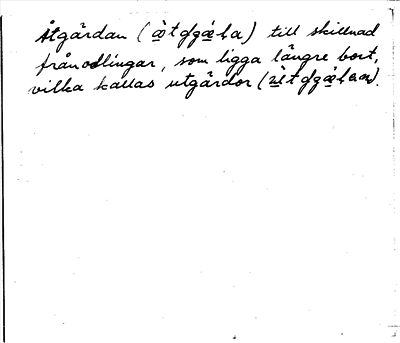 Åtgärdan (                ) till skillnad
från odlingar, som ligga längre bort,
vilka kallas utgärdor (                ).